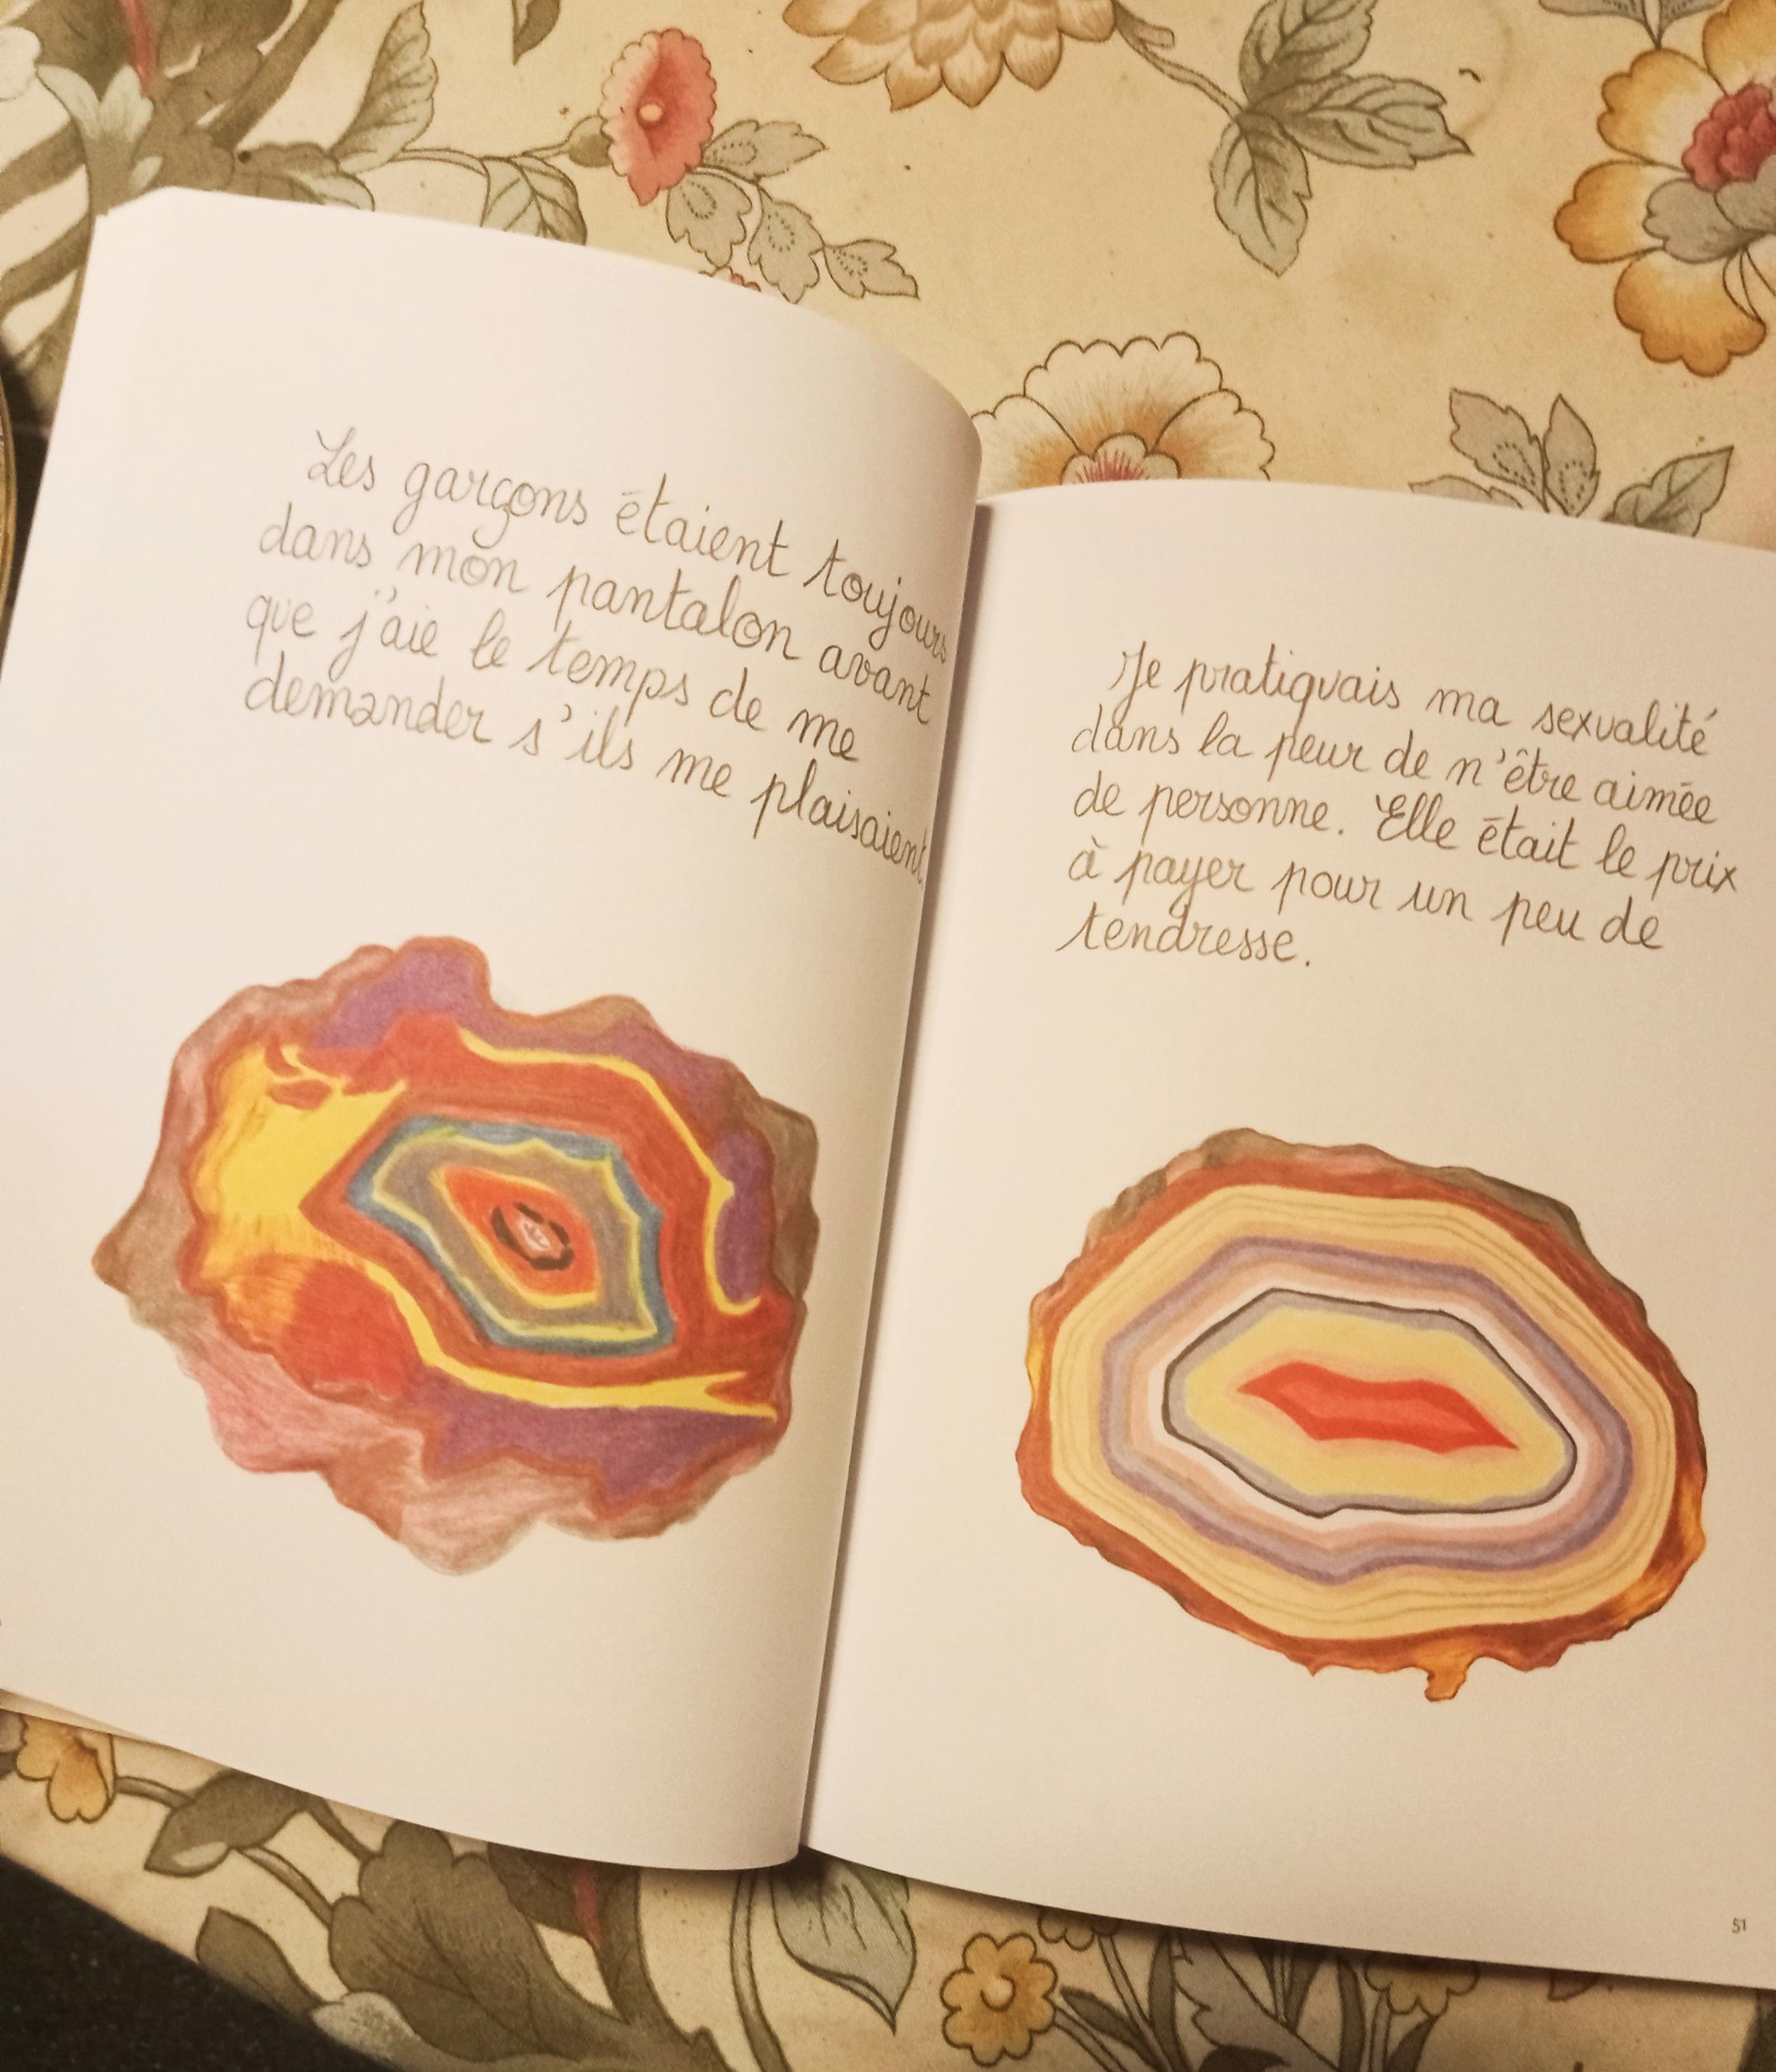 Les garçons étaient toujours
dans mon pantalon avant
que j'aie le temps de me
demander s'ils me plaisaient
Je pratiquais ma sexualité
dans la peur de n'être aimée
de personne. Elle était le prix
à payer pour un peu de
tendresse.
51